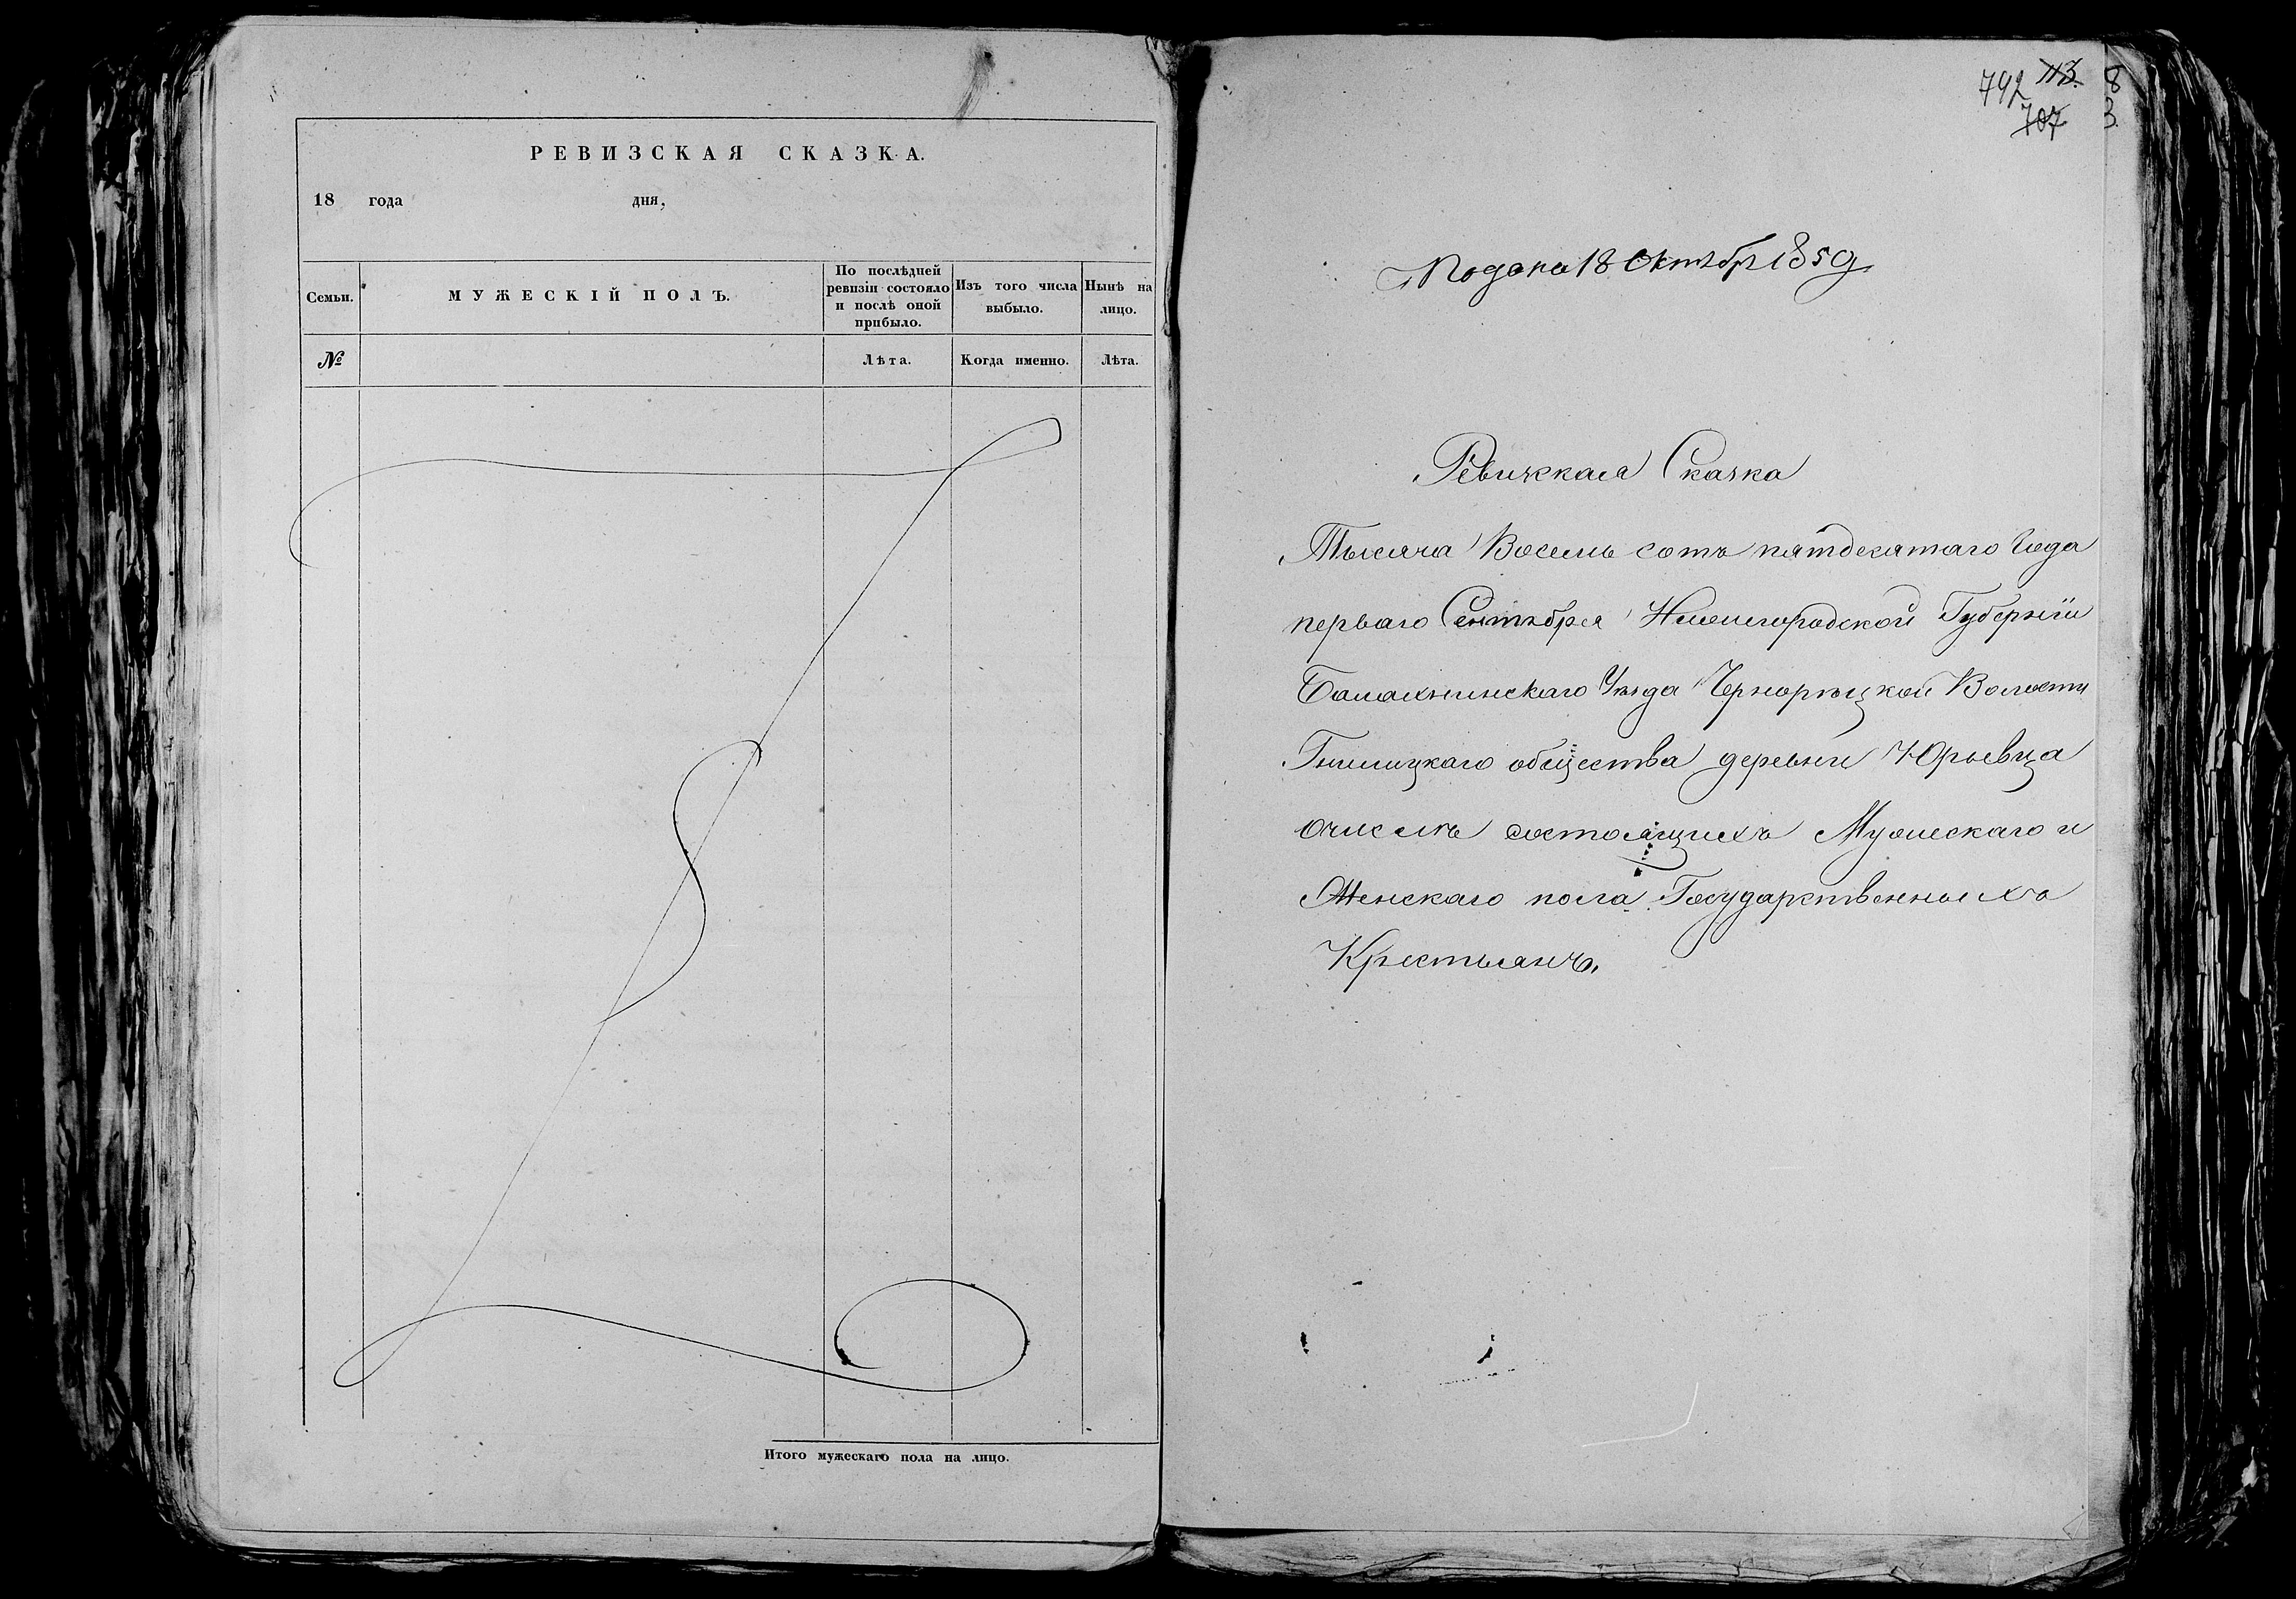 РЕВИЗСКАЯ СКАЗКА.
18 года дня,
Семьи.
МУЖЕСКІЙ ПОЛЪ.
По послѣдней
ревизіи состояло
и послѣ оной
прибыло.
Изъ того числа
выбыло.
Нынѣ на
лицо.
№
Лѣта.
Когда именно.
Лѣта.
Итого мужескаго пола на лицо.
792 113. 8
707 3
Подана 18 Октября 1859
Ревижская Сказка
Тысяча Восемь сотъ пятдесятаго Года
перваго Сентября Нижегородской Губерніи
Балахнинскаго Уѣзда Чернорѣцкой Волости
Гнилицкаго общества деревни Юрьевца
очислѣ состоящихъ Мужескаго и
Женскаго пола Государственныхъ
Крестьянъ.